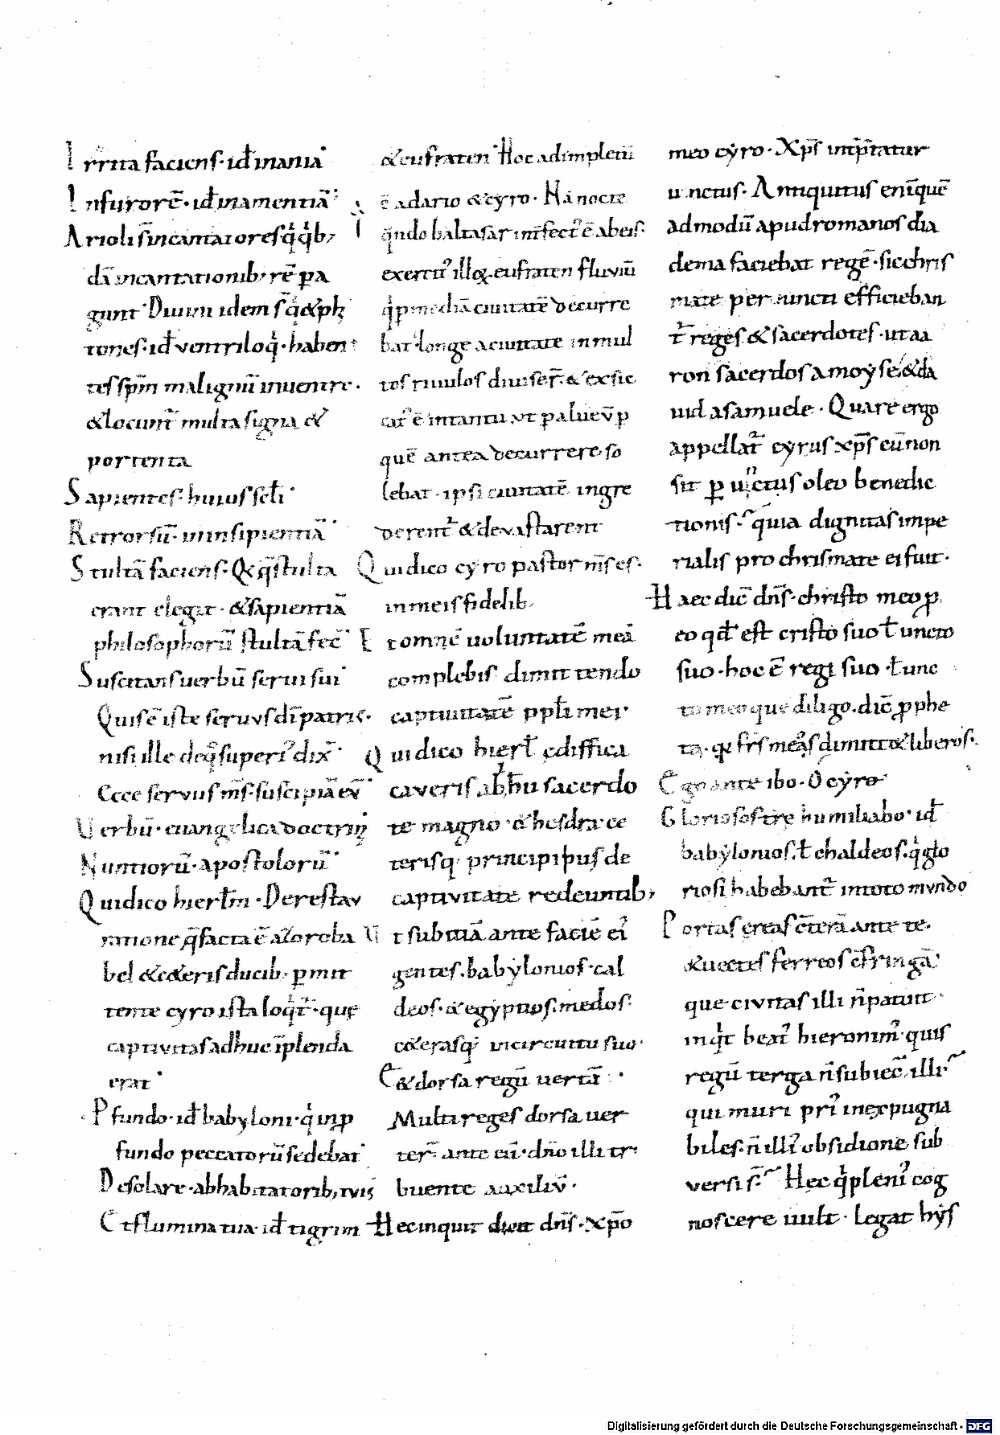 Irrita faciens· id÷ inania·
Infurorē· id÷ inamentiā·
Arioli s̄ incantatores q̇ q̇b;
dā incantationib; rē pa
gunt· Diuini idem s̄ q̇ & ph
tones· id÷ ventriloq̇· haben
tes sp̄m malignū inuentre·
& locunt̄ multa signa &
portenta
Sapientes· huius sc̄li·
Retrorsū· in insipientiā·
Stultā faciens· Q stulta
erant elegit· & sapientiā
philosophorū stultā fec̄·
Suscitans uerbū serui sui·
Quis ē iste seruus dī patris·
nisi ille de q̄ superi dix̄·
Ecce servus m̄s· suscipiā eū·
Uerbū· euangelica doctrinā
Nuntiorū· apostolorū·
Qui dico hierl̄m· De restau
ratione q̄ facta ē a zoroba
bel & ceteris ducib· p̱mit
tente cyro ista loq̇t̄· que
captivitas adhuc īplenda
erat·
Pfundo· id÷ babyloni· q̇ inp
fundo peccatorū sedebat·
Desolare· ab habitatorib; tuis
Et flumina tua· id÷ tigrim
& eufraten· Hoc adimpletū
ē adario & cyro· Nā nocte
q̄ndo baltasar int̄fect̄ ē abeis·
exercit᾽ illoꝝ eufraten fluviū
q̇ p mediā ciuitatē decurre
bat· longe aciuitate in mul
tos riuulos diuiser̄· & exsic
cat᾽ ē intantū· vt p alueū p
quē antea decurrere so
lebat· ipsi ciuitatē ingre
derent̄ & devastarent
Qui dico cyro pastor m̄s es·
in meis fidelib·
Et omnē uoluntatē meā
complebis dimittendo
captiuitatē ppl̄i mei·
Qui dico hierl̄ ediffica
caveris abh̄u sacerdo
te magno· & hesdra ce
terisq· principibus de
captivitate redeuntib;
Ut subitiā ante faciē ei᾽
gentes· babylonios· cal
deos· & egyptios· medos·
ceterasq· incircuitu suo·
Et dorsa regū uertā·
Multi reges dorsa uer
ter̄· ante eū· dn̄o illi tri
buente auxiliū·
Hec inquit dicit dn̄s· xp̄o
meo cyro· Xp̄s int̄p̄tatur
unctus· Antiquitus enī quē
admodū apud romanos dia
dema faciebat regē· sic chris
mate per uncti efficieban
t̄ reges & sacerdotes· ut aa
ron sacerdos a moyse· & da
uid a samuele· Quare ergo
appellat̄ cyrus xp̄s cū non
sit p unctus oleo benedic
tionis· quia dignitas impe
rialis pro chrismate ei fuit·
Haec dic̄ dn̄s· christo meo p
eo qd̄ est cristo suo ł uncto
suo· hoc ē regi suo ł unc
to meo que diligo· dic̄ pphe
ta· qꝛ frs̄ meos dimitt& liberos·
Ego ante ibo· O cyro·
Gloriosos tre humiliabo· id÷
babylonios· ł chaldeos· q̇ glo
riosi habebant̄ intoto mvndo
Portas ereas c̄terā ante te·
& uectes ferreos c̄fringā·
que civitas illi n̄ patuit·
inq̇t beat᾽ hieronim᾽· quis
regū terga n̄ subiec̄ illi·
qui muri pri᾽ inexpugna
biles· n̄ illi᾽ obsidione sub
versi s̄· Hec q̇ pleni᾽ cog
noscere uult· legat hys
Digitalisierung gefördert durch die Deutsche Forschungsgemeinschaft - DFG